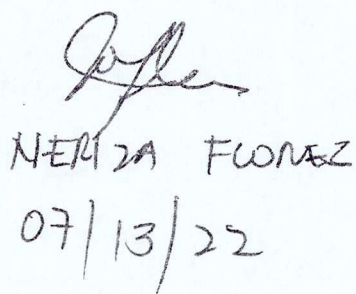 NERIZA FLOREZ
07/13/22